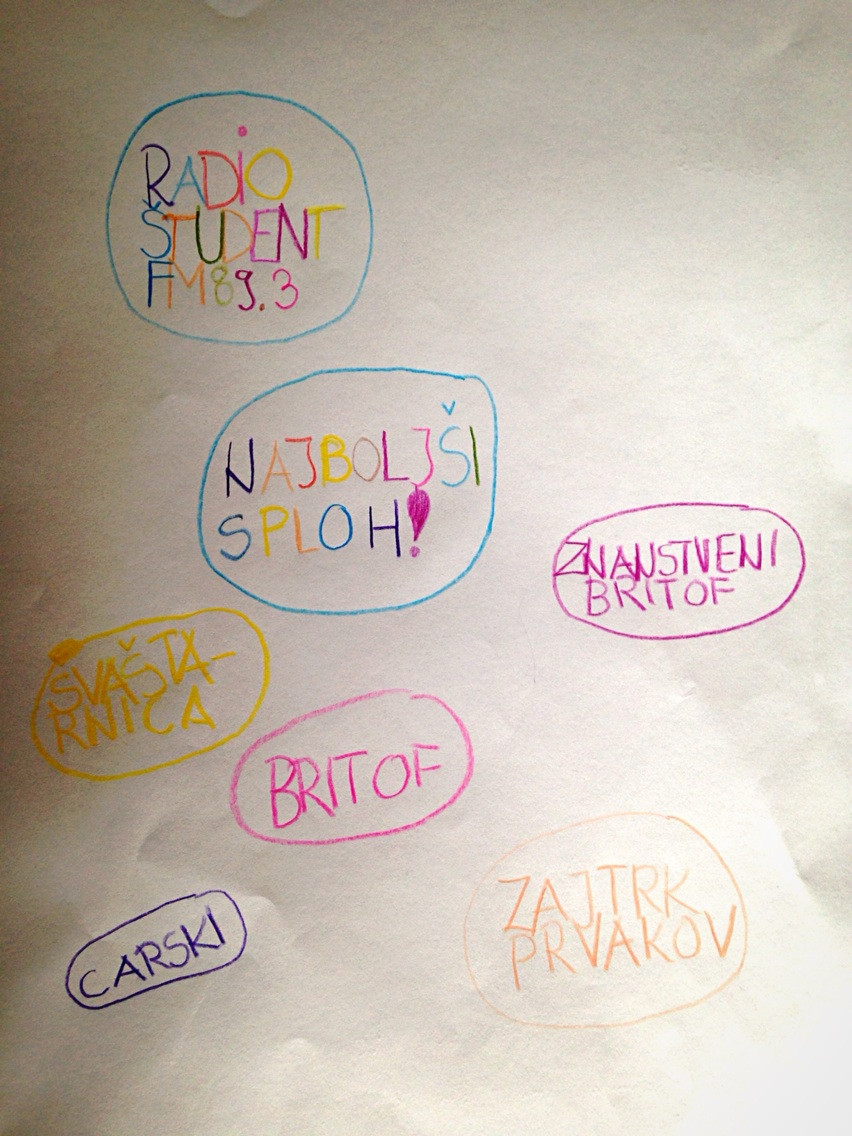 RADIO
ŠTUDENT
FM 89.3
NAJBOLJŠI
SPLOH!
ZNANSTVENI
BRITOF
ŠVAŠTA-
RNICA
BRITOF
ZAJTRK
PRVAKOV
CARSKI